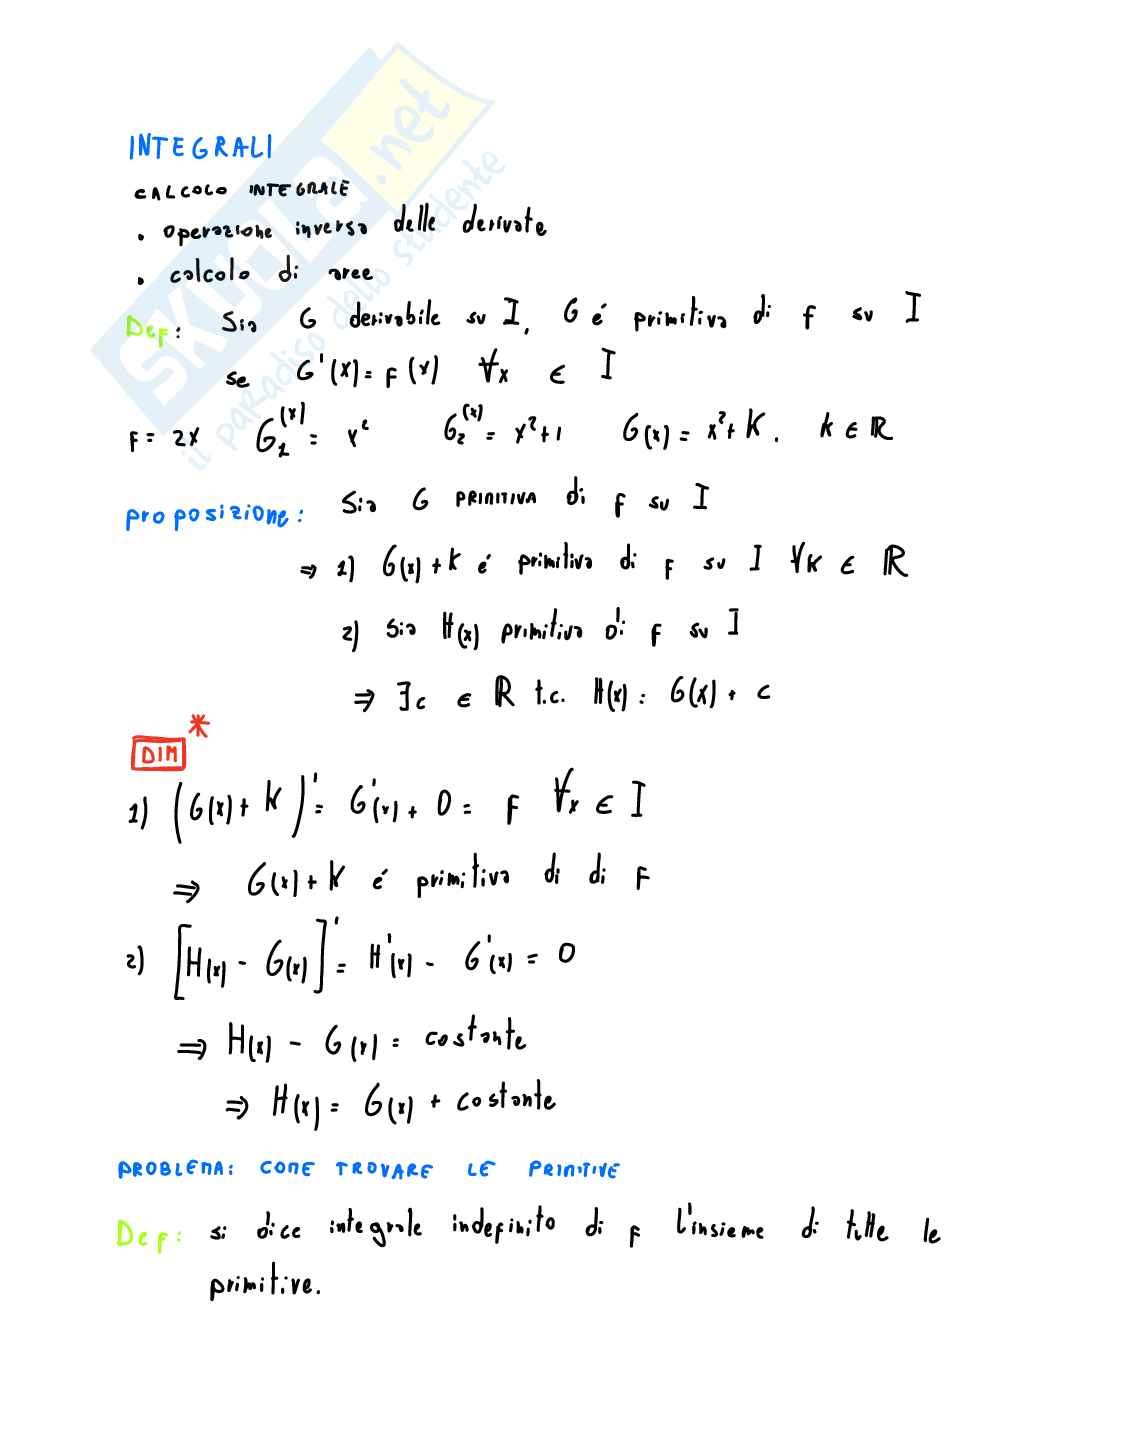 SKUOLA.net
il paradiso dello studente
INTEGRALI
CALCOLO INTEGRALE
• operazione inversa delle derivate
• calcolo di aree
Def: Sia G derivabile su I, G é primitiva di f su I
se G'(x) = f(x) ∀x ∈ I
f = 2x G₁(x) = x² G₂(x) = x²+1 G(x) = x²+K, k ∈ ℝ
proposizione: Sia G PRIMITIVA di f su I
⇒ 1) G(x)+K é primitiva di f su I ∀K ∈ ℝ
2) sia H(x) primitiva di f su I
⇒ ∃c ∈ ℝ t.c. H(x) = G(x) + c
DIM *
1) (G(x) + K)' = G'(x) + 0 = f ∀x ∈ I
⇒ G(x)+K é primitiva di di f
2) [H(x) - G(x)]' = H'(x) - G'(x) = 0
⇒ H(x) - G(x) = costante
⇒ H(x) = G(x) + costante
PROBLEMA: COME TROVARE LE PRIMITIVE
Def: si dice integrale indefinito di f l'insieme di tutte le
primitive.